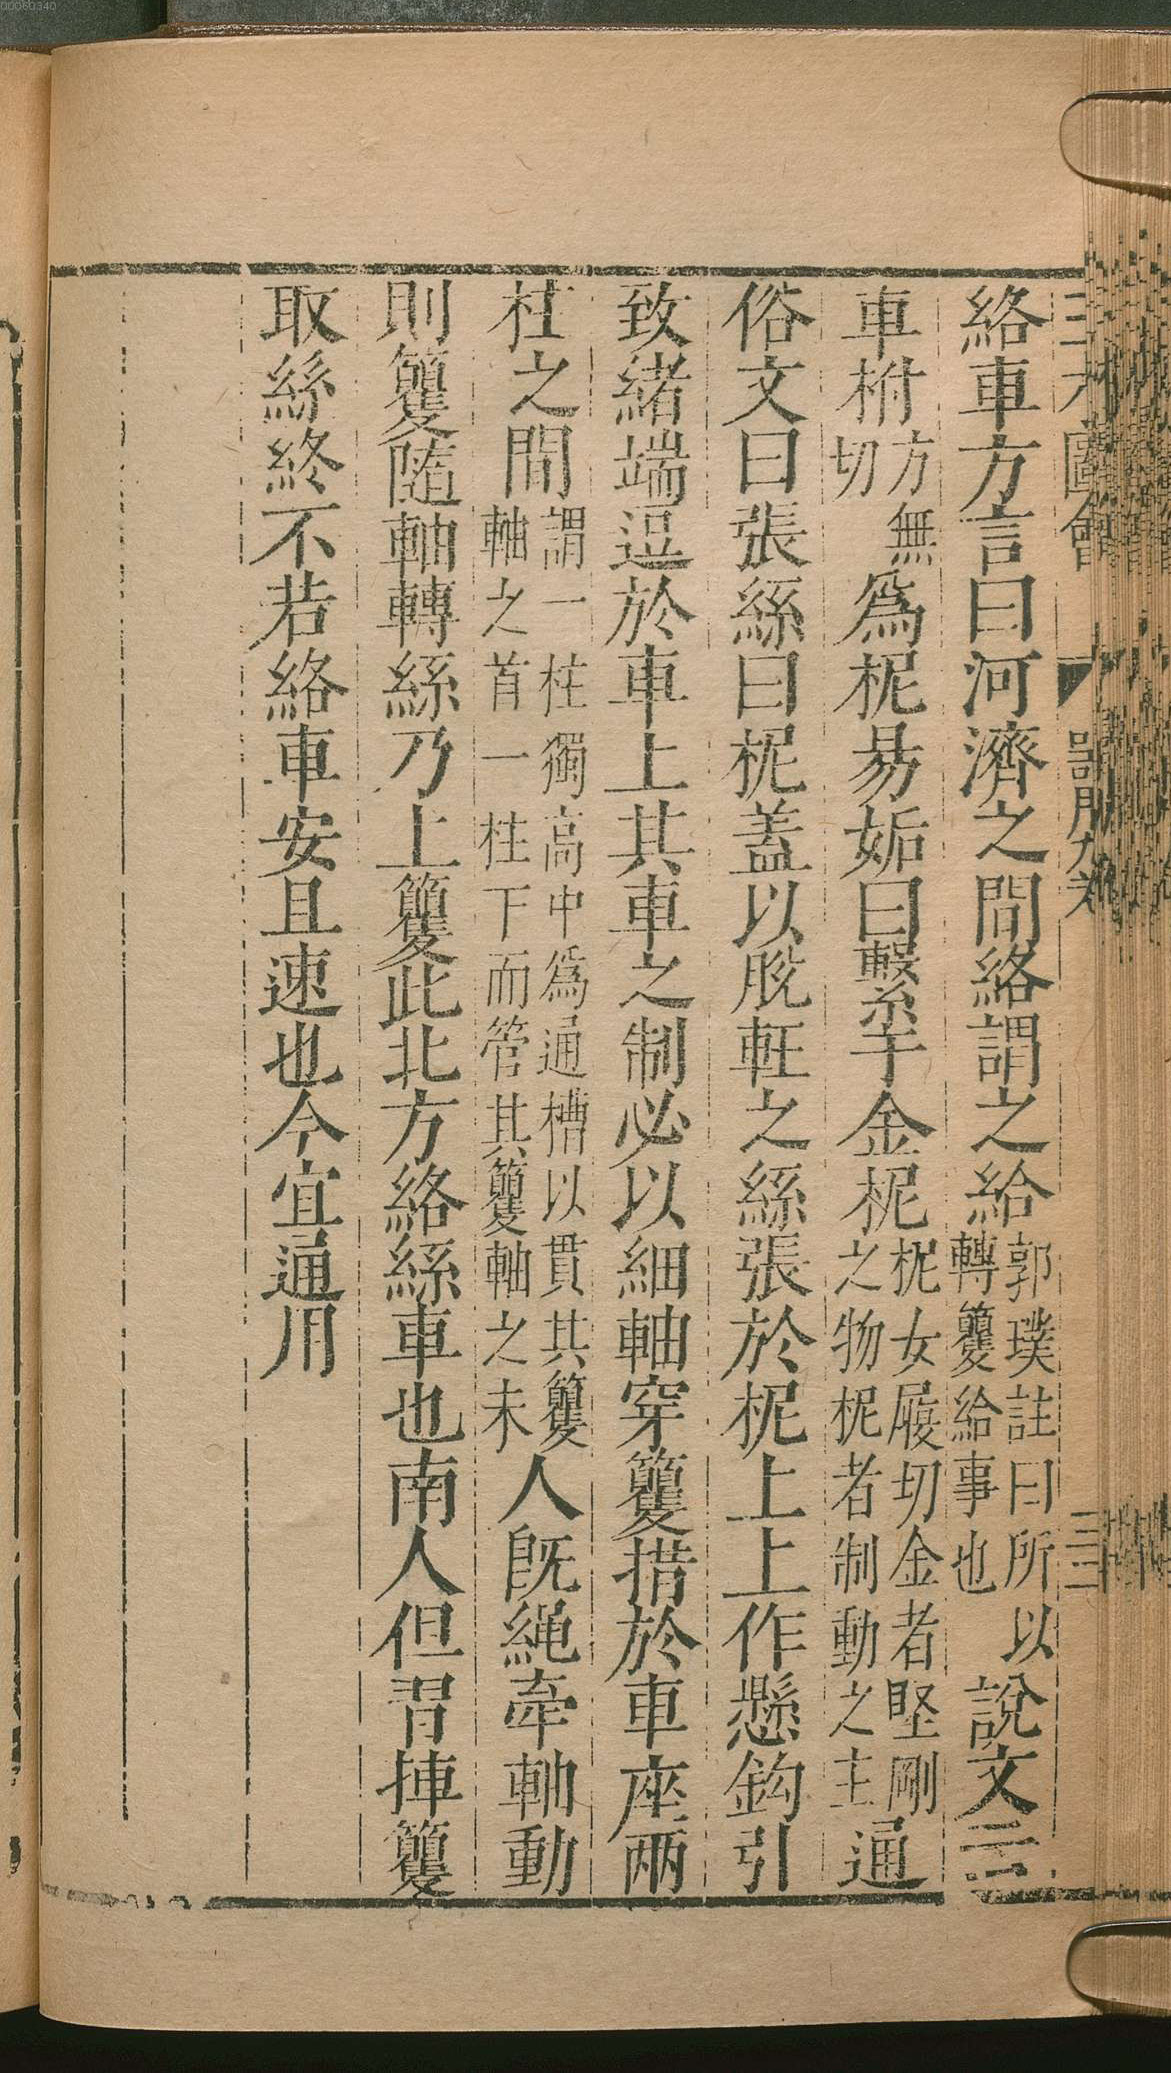 00060340
三才圖會
器用九卷
三二
絡車方言曰河濟之間絡謂之給郭璞註曰所以轉籰給事也說文云
車柎方無切為柅易姤曰繫于金柅柅女屐切金者堅剛之物柅者制動之主通
俗文曰張絲曰柅蓋以脫軖之絲張於柅上上作懸鈎引
致緒端逗於車上其車之制必以細軸穿籰措於車座兩
柱之間謂一柱獨高中為通槽以貫其籰軸之首一柱下而管其籰軸之末人既繩牽軸動
則籰隨軸轉絲乃上籰此北方絡絲車也南人但習掉籰
取絲終不若絡車安且速也今宜通用